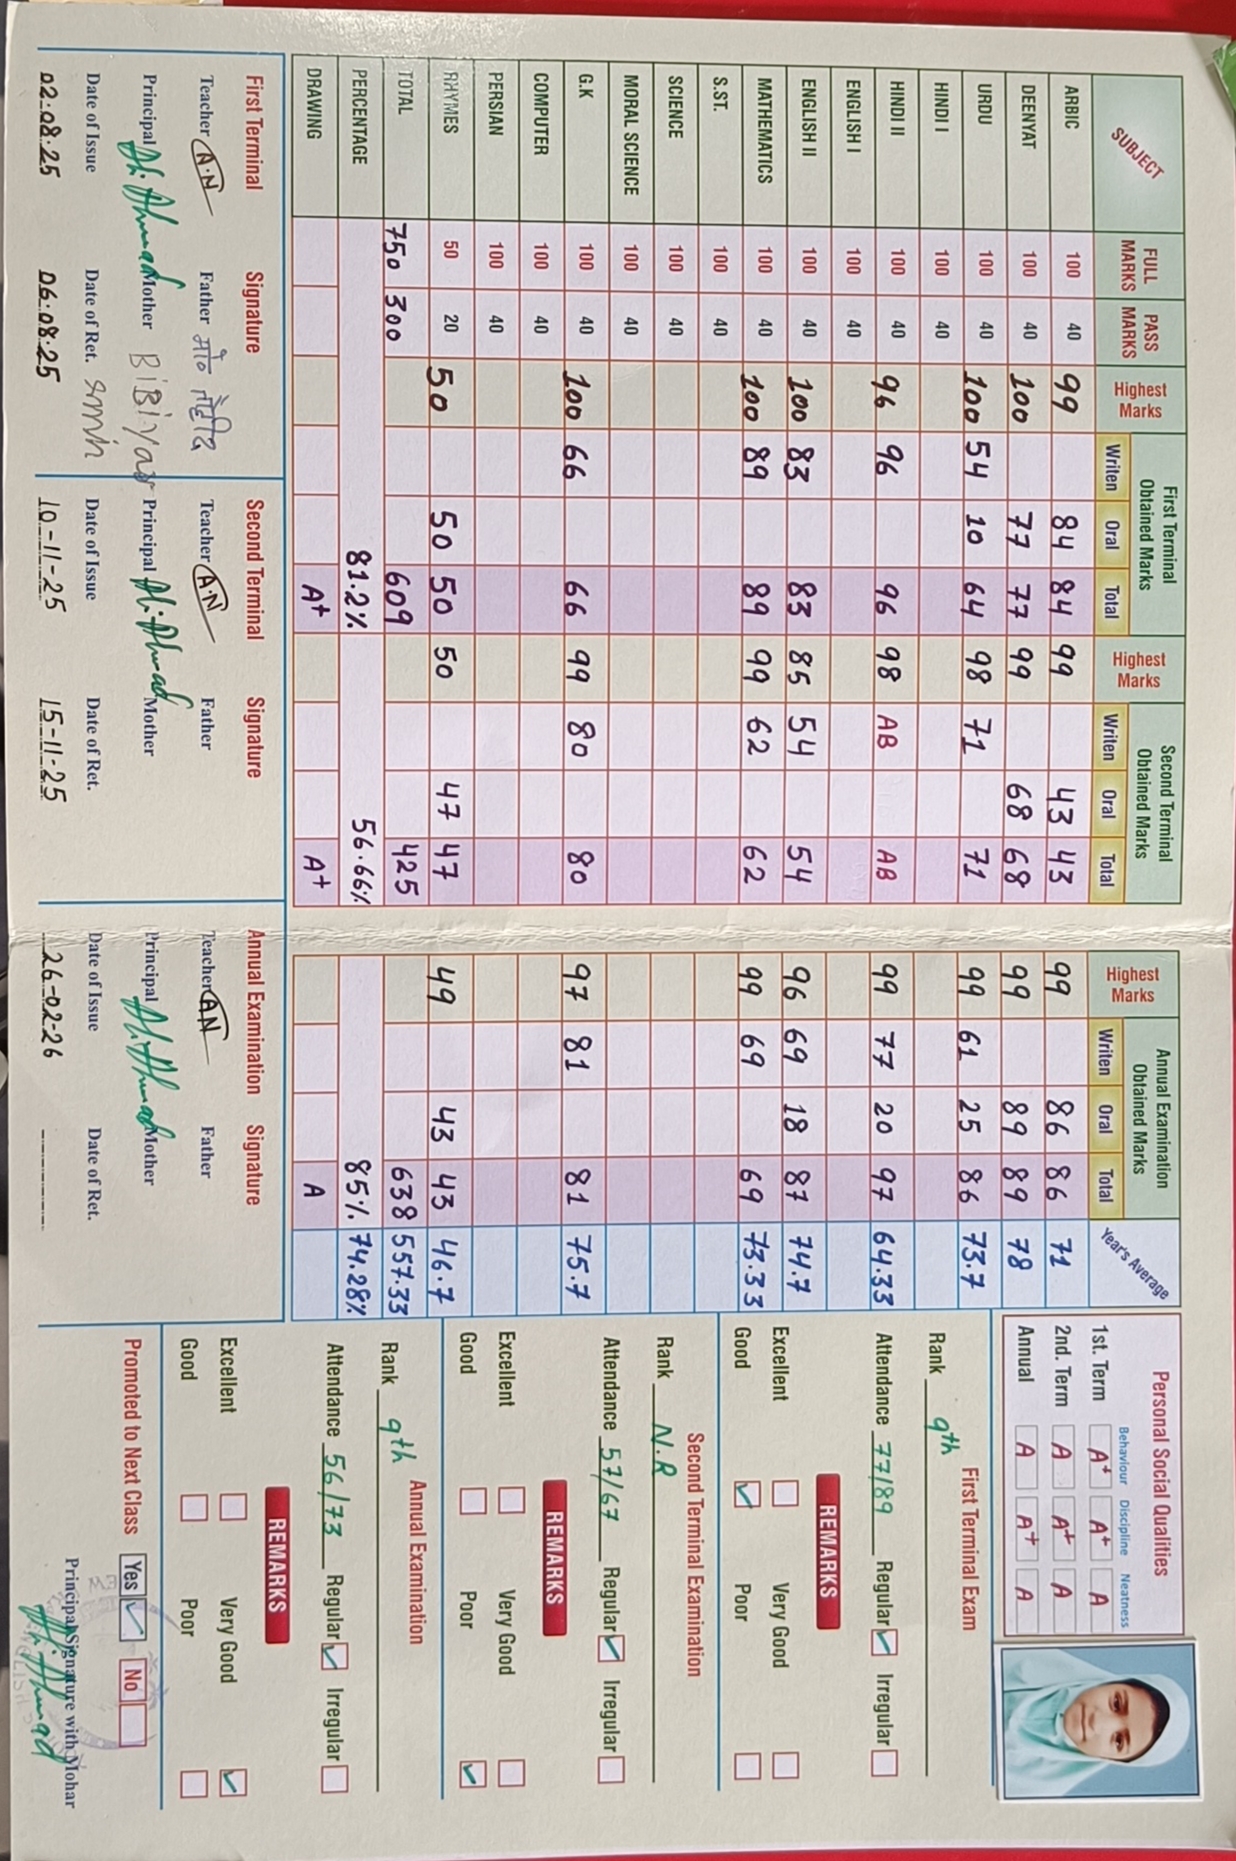 SUBJECT FULL MARKS PASS MARKS Highest Marks First Terminal Obtained Marks Writen Oral Total Highest Marks Second Terminal Obtained Marks Writen Oral Total Highest Marks Annual Examination Obtained Marks Writen Oral Total Year's Average
ARBIC 100 40 99 84 84 99 43 43 99 86 86 71
DEENYAT 100 40 100 77 77 99 68 68 99 89 89 78
URDU 100 40 100 54 10 64 98 71 71 99 61 25 86 73.7
HINDI I 100 40
HINDI II 100 40 96 96 96 98 AB AB 99 77 20 97 64.33
ENGLISH I 100 40
ENGLISH II 100 40 100 83 83 85 54 54 96 69 18 87 74.7
MATHEMATICS 100 40 100 89 89 99 62 62 99 69 69 73.33
S.ST. 100 40
SCIENCE 100 40
MORAL SCIENCE 100 40
G.K 100 40 100 66 66 99 80 80 97 81 81 75.7
COMPUTER 100 40
PERSIAN 100 40
RHYMES 50 20 50 50 50 50 47 47 49 43 43 46.7
TOTAL 750 300 609 425 638 557.33
PERCENTAGE 81.2% 56.66% 85% 74.28%
DRAWING A+ A+ A
First Terminal Signature
Teacher A.N Father
Principal Ali Ahmad Mother
Date of Issue Date of Ret.
02.08.25 06.08.25
Second Terminal Signature
Teacher A.N Father
Principal Ali Ahmad Mother
Date of Issue Date of Ret.
10-11-25 15-11-25
Annual Examination Signature
Teacher AN Father
Principal Ali Ahmad Mother
Date of Issue Date of Ret.
26-02-26
Personal Social Qualities
Behaviour Discipline Neatness
1st. Term A+ A+ A
2nd. Term A A+ A
Annual A A+ A
First Terminal Exam
Rank 9th
Attendance 77/89 Regular Irregular
REMARKS
Excellent Very Good
Good Poor
Second Terminal Examination
Rank N.R
Attendance 57/67 Regular Irregular
REMARKS
Excellent Very Good
Good Poor
Annual Examination
Rank 9th
Attendance 56/73 Regular Irregular
REMARKS
Excellent Very Good
Good Poor
Promoted to Next Class Yes No
Principal Signature with Mohar
Ali Ahmad